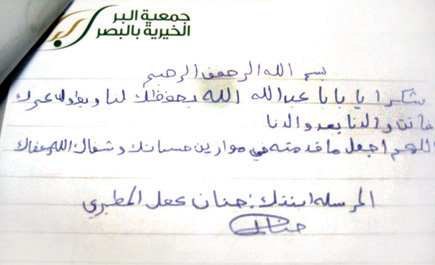 جمعية البر
الخيرية بالبصر
بسم الله الرحمن الرحيم
شكرا يا بابا عبدالله الله يحفظك لنا ويطول عمرك
فانت والدنا بعد والدنا
اللهم اجعل ما قدمته في موازين حسناتك وشفاك الله وعفاك
المرسله ابنتك: حنان المطيري
حنان